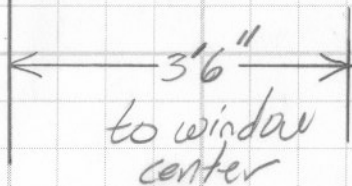 3'6"
to window
center